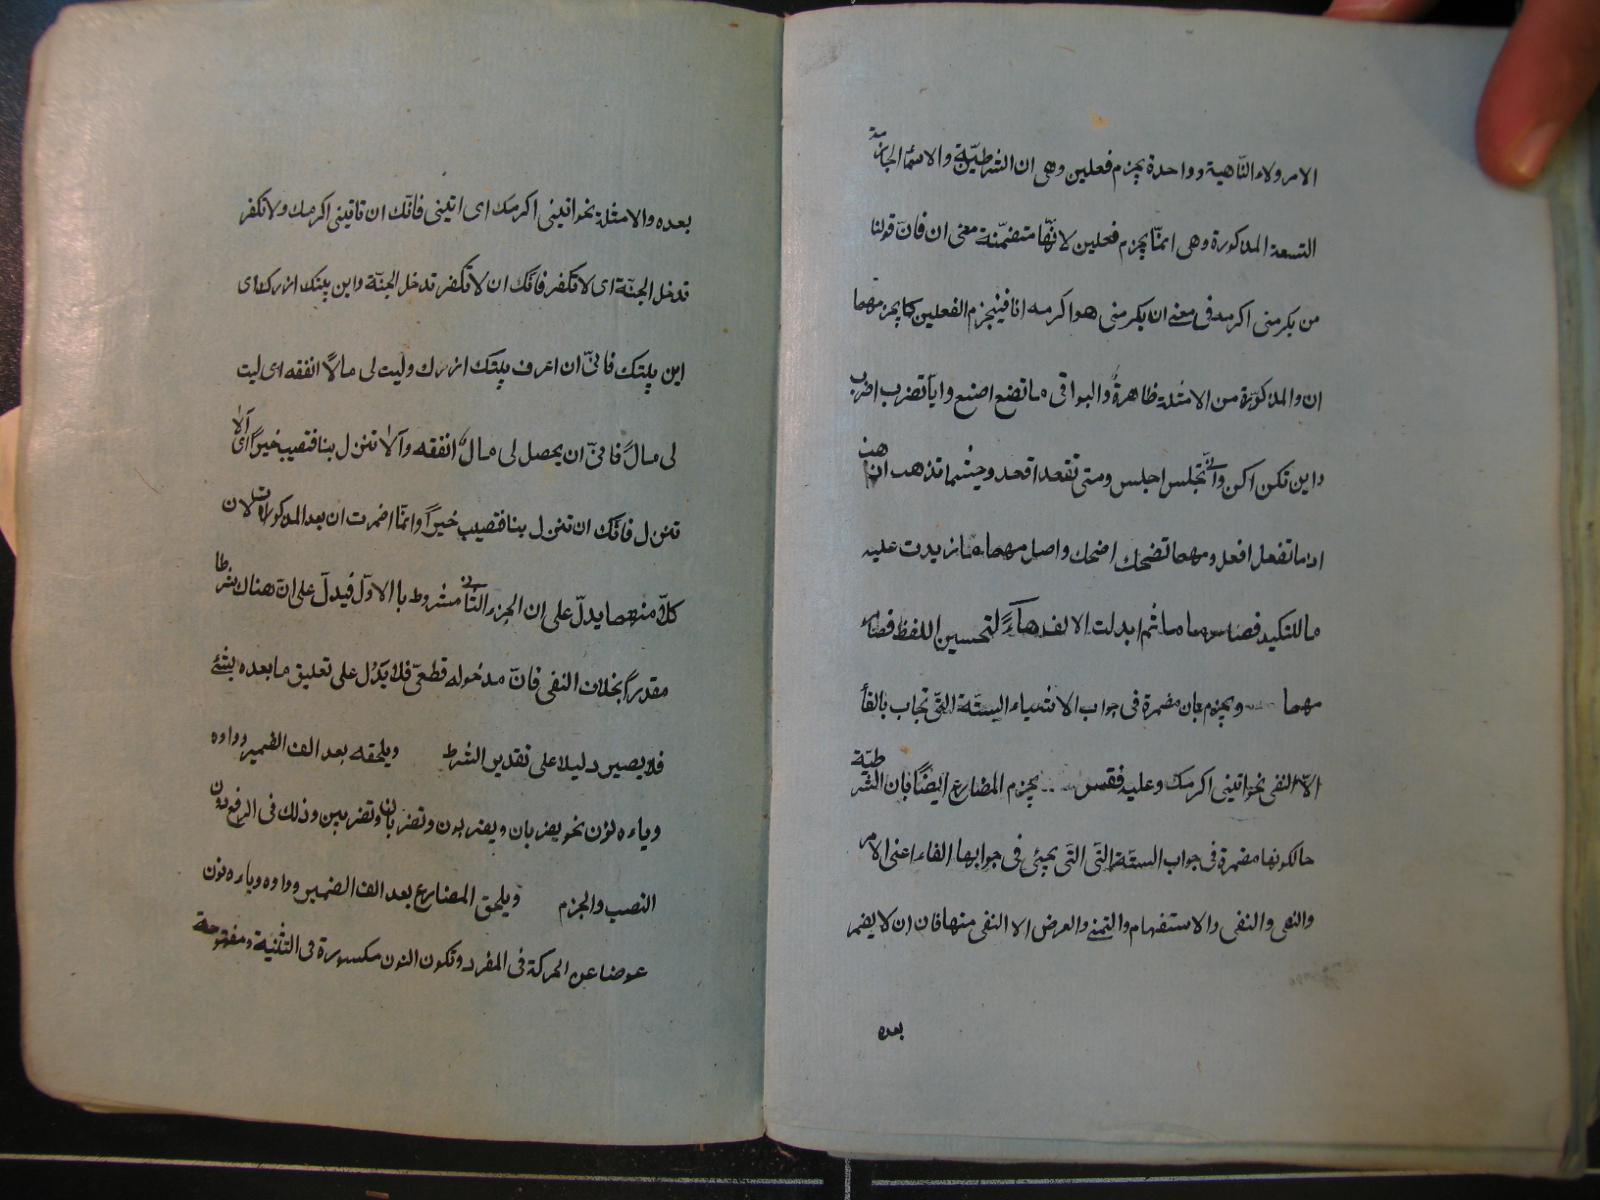 الامر ولاء الناهية وواحدة يجزم فعلين وهى ان الشرطيّة والاسماء الجازمة
التسعة المذكورة وهى انمّا يجزم فعلين لانهّا متضمّنة معنى ان فانّ قولنا
من يكرمنى اكرمه فى معنى ان يكرمنى هو اكرمه انا فينجزم الفعلين كما يجزمهما
ان والمذكورة من الامثلة ظاهرة والبواقى ما تصنع اصنع وايّا تضرب اضرب
واين تكن اكن وانّى تجلس اجلس ومتى تقعد اقعد وحيثما تذهب اذهب
اذما تفعل افعل ومهما تضحك اضحك واصل مهما ما زيدت عليه
ما للتاكيد فصار ماما ثم ابدلت الالف هاءً لتحسين اللفظ فصار
مهما ويجزم بان مضمرة فى جواب الاشياء الستّة التّى تجاب بالفاء
الاّ النفى نحو اتينى اكرمك وعليه فقس يجزم المضارع ايضًا بان الشرطيّة
حالكونها مضمرة فى جواب الستّة التّى التّى يجيئى فى جوابها الفاء اعنى الامر
والنهى والنفى والاستفهام والتمنى والعرض الا النفى منها فان ان لا يضمر
بعده
بعده والامثلة نحو اتينى اكرمك اى اتينى فانّك ان تاتينى اكرمك ولا تكفر
تدخل الجنّة اى لا تكفر فانّك ان لا تكفر تدخل الجنّة واين بيتك ازرك اى
اين بيتك فانىّ ان اعرف بيتك ازرك وليت لى مالاً انفقه اى ليت
لى مالً فانىّ ان يحصل لى مال انفقه وآلا تنزل بنا فتصيب خيراً اى آلا
تنزل فانّك ان تنزل بنا فتصيب خيراً وانمّا اضمرت ان بعد المذكورات لان
كلاّ منهما يدلّ على ان الجزء الثانى مشروط باالاوّل فيدلّ على انّ هناك شرطا
مقدراً بخلاف النفى فانّ مدخوله قطعىّ فلا يدّل على تعليق ما بعده بشئ
فلا يصير دليلا على تقدير الشرط ويلحقه بعد الف الضمير وواوه
وياءه نون نحو يضربان ويضربون وتضربان وتضربين وذلك فى الرفع دون
النصب والجزم ويلحق المضارع بعد الف الضمير وواوه وياءه نون
عوضا عن الحركة فى المفرد وتكون النون مكسورة فى التثنية ومفتوحة